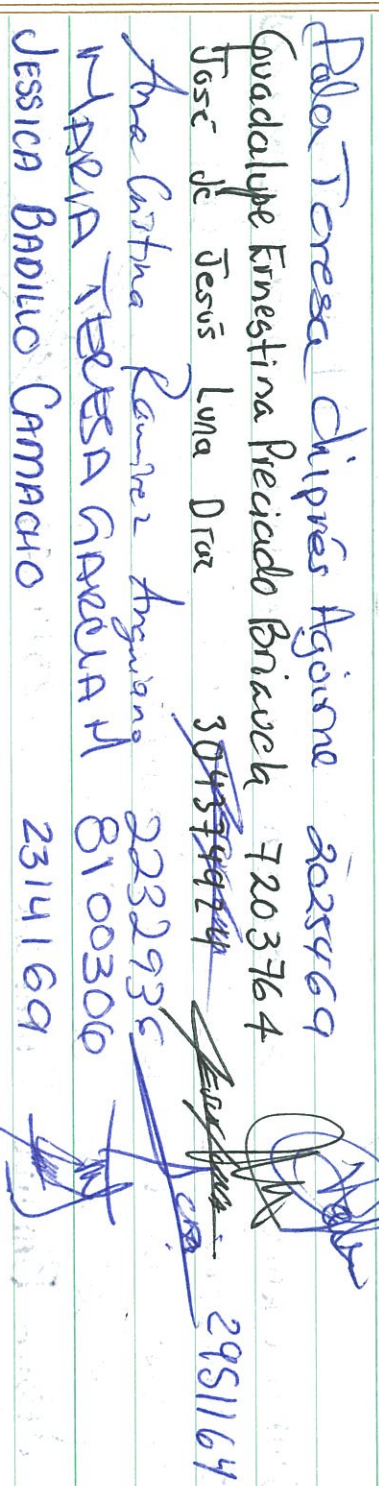 Teresa Chiprés Aguirre 2025469
Guadalupe Ernestina Preciado Brizuela 7203764
José de Jesús Luna Díaz 304374924 2951164
Ana Cristina Ramírez Anguiano 2232935
MARIA TERESA GARCIA M 8100306
JESSICA BADILLO CAMACHO 2314169